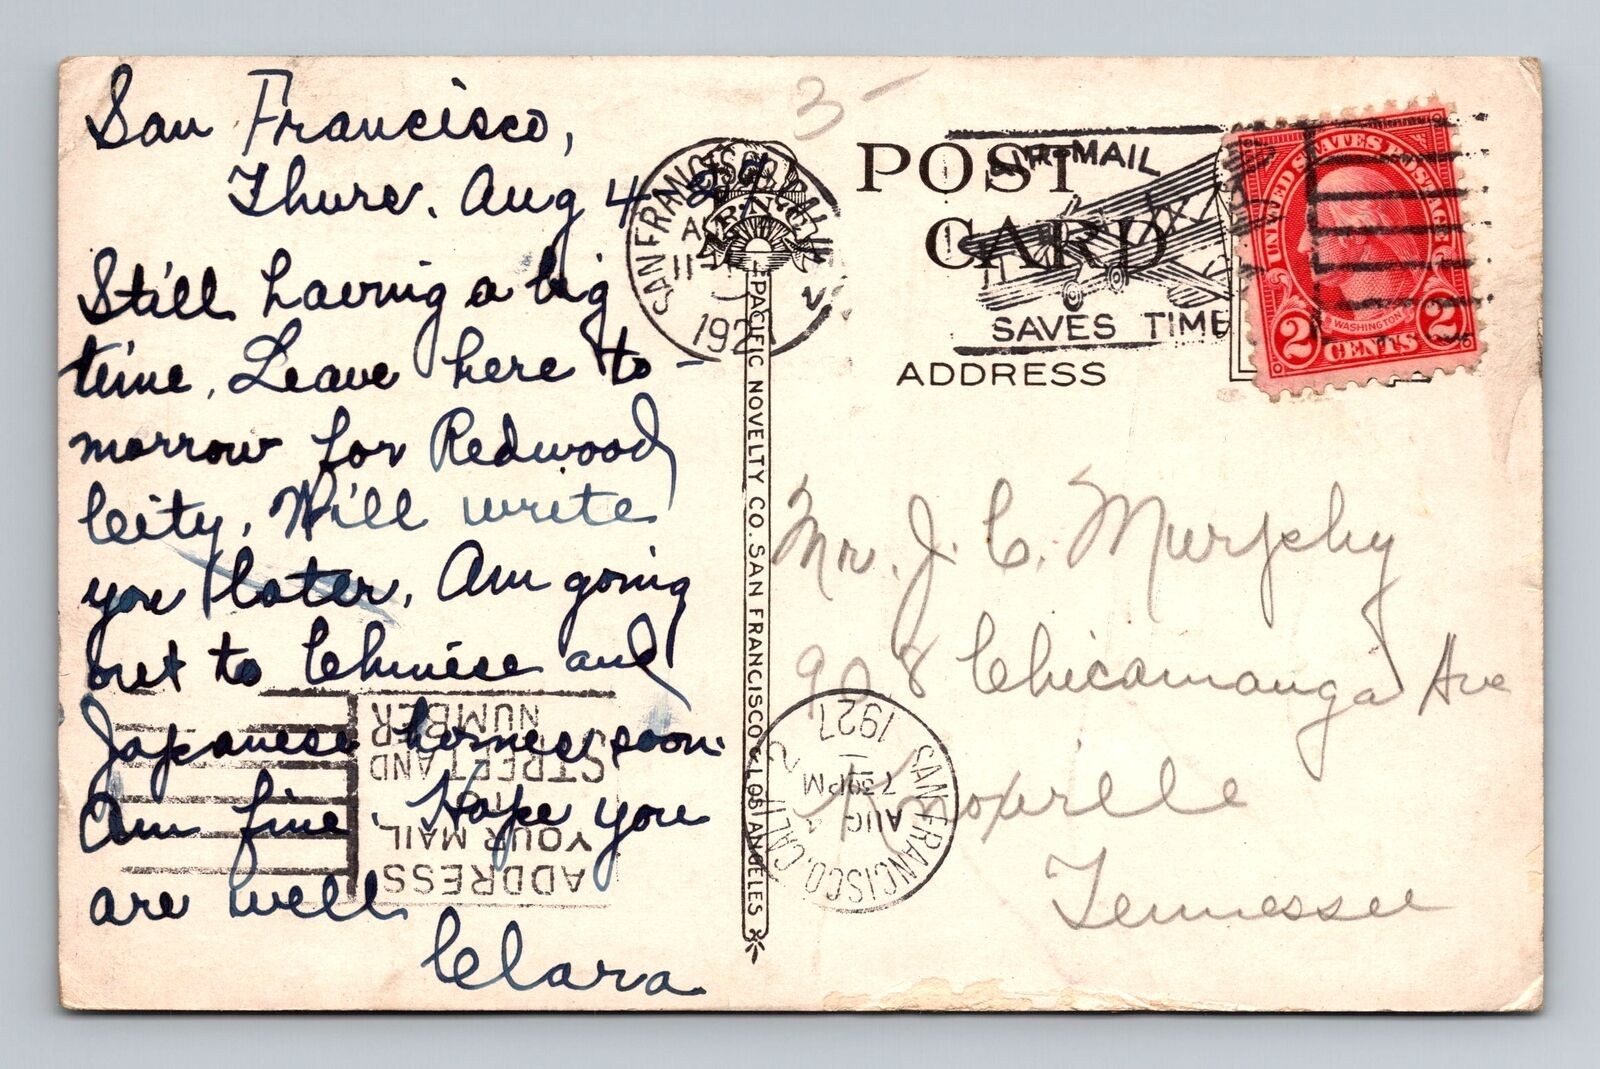 San Francisco,
Thurs. Aug 4 27
Still having a big
time. Leave here to-
morrow for Redwood
City. Will write
you later. Am going
out to Chinese and
Japanese homes soon.
Am fine. Hope you
are well.
Clara
3-
POST CARD
ADDRESS
SAN FRANCISCO, CAL.
192
AIR MAIL
SAVES TIME
UNITED STATES POSTAGE
WASHINGTON
2 CENTS 2
PACIFIC NOVELTY CO. SAN FRANCISCO & LOS ANGELES
Mr. J. C. Murphy
908 Chicamauga Ave
Knoxville
Tennessee
SAN FRANCISCO, CALIF.
AUG
7 30 PM
1927
ADDRESS
YOUR MAIL
TO
STREET AND
NUMBER